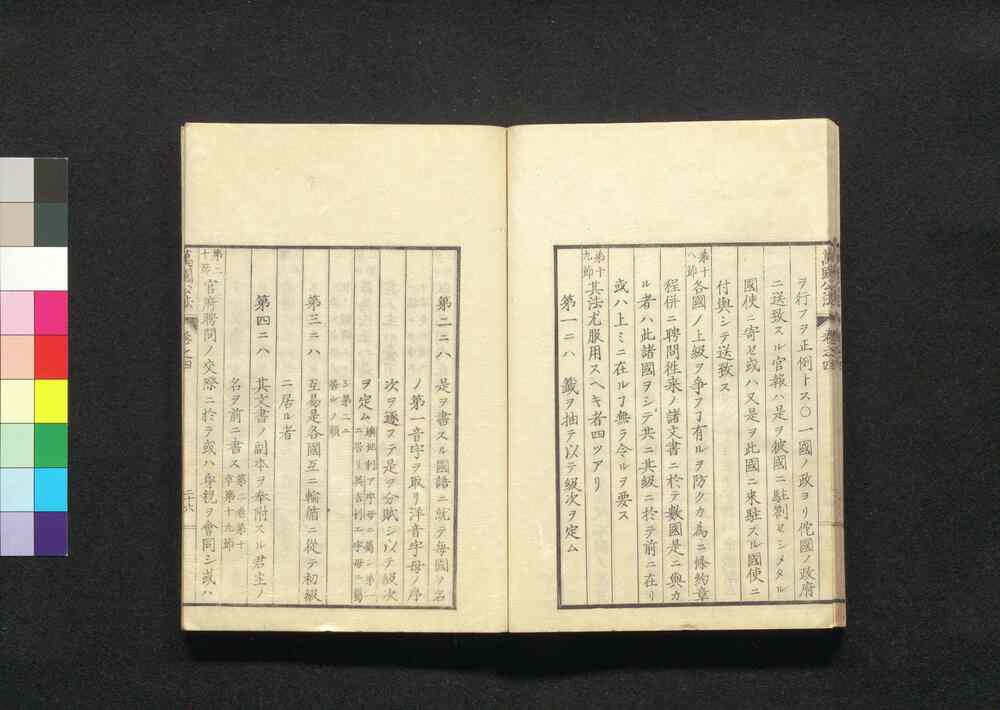 萬國公法 卷之四
ヲ行フヲ正例トス〇一國ノ政ヨリ佗國ノ政府
ニ送致スル官報ハ是ヲ彼國ニ駐劄セシメタル
國使ニ寄セ或ハ又是ヲ此國ニ来駐スル國使ニ
付與シテ送致ス
第十八節
各國ノ上級ヲ争フヿ有ルヲ防クカ為ニ條約章
程併ニ聘問徃来ノ諸文書ニ於テ數國是ニ與カ
ル者ハ此諸國ヲシテ共ニ其級ニ於テ前ニ在リ
或ハ上ミニ在ルヿ無ラ令ルヲ要ス
第十九節
其法尤服用スヘキ者四ツアリ
第一ニハ 籤ヲ抽テ以テ級次ヲ定ム
第二ニハ 是ヲ書スル國語ニ就テ毎國ノ名
ノ第一音字ヲ取リ洋音字母ノ序
次ヲ逐フテ是ヲ分賦シ以テ級次
ヲ定ム
第三ニハ 互易是各國互ニ輪循ニ從テ初級
ニ居ル者
第四ニハ 其文書ノ副本ヲ奉附スル君主ノ
名ヲ前ニ書ス 第二卷第十
章第十九節
第二十節
官府聘問ノ交際ニ於テ或ハ専視ヲ會同シ或ハ
萬國公法 卷之四
三十六